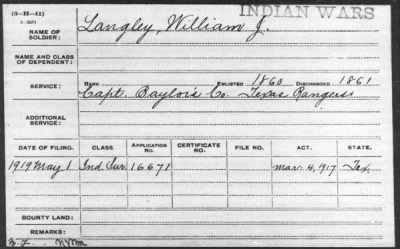 INDIAN WARS
(3-H-11)
NAME OF SOLDIER: Langley, William J.
NAME AND CLASS OF DEPENDENT:
SERVICE: RANK ENLISTED 1860 DISCHARGED 1861
Capt. Baylor's Co. Texas Rangers
ADDITIONAL SERVICE:
DATE OF FILING. CLASS. APPLICATION NO. CERTIFICATE NO. FILE NO. ACT. STATE.
1919 May 1 Ind. Sur. 16671 Mar. 4, 1917 Tex.
BOUNTY LAND:
REMARKS: